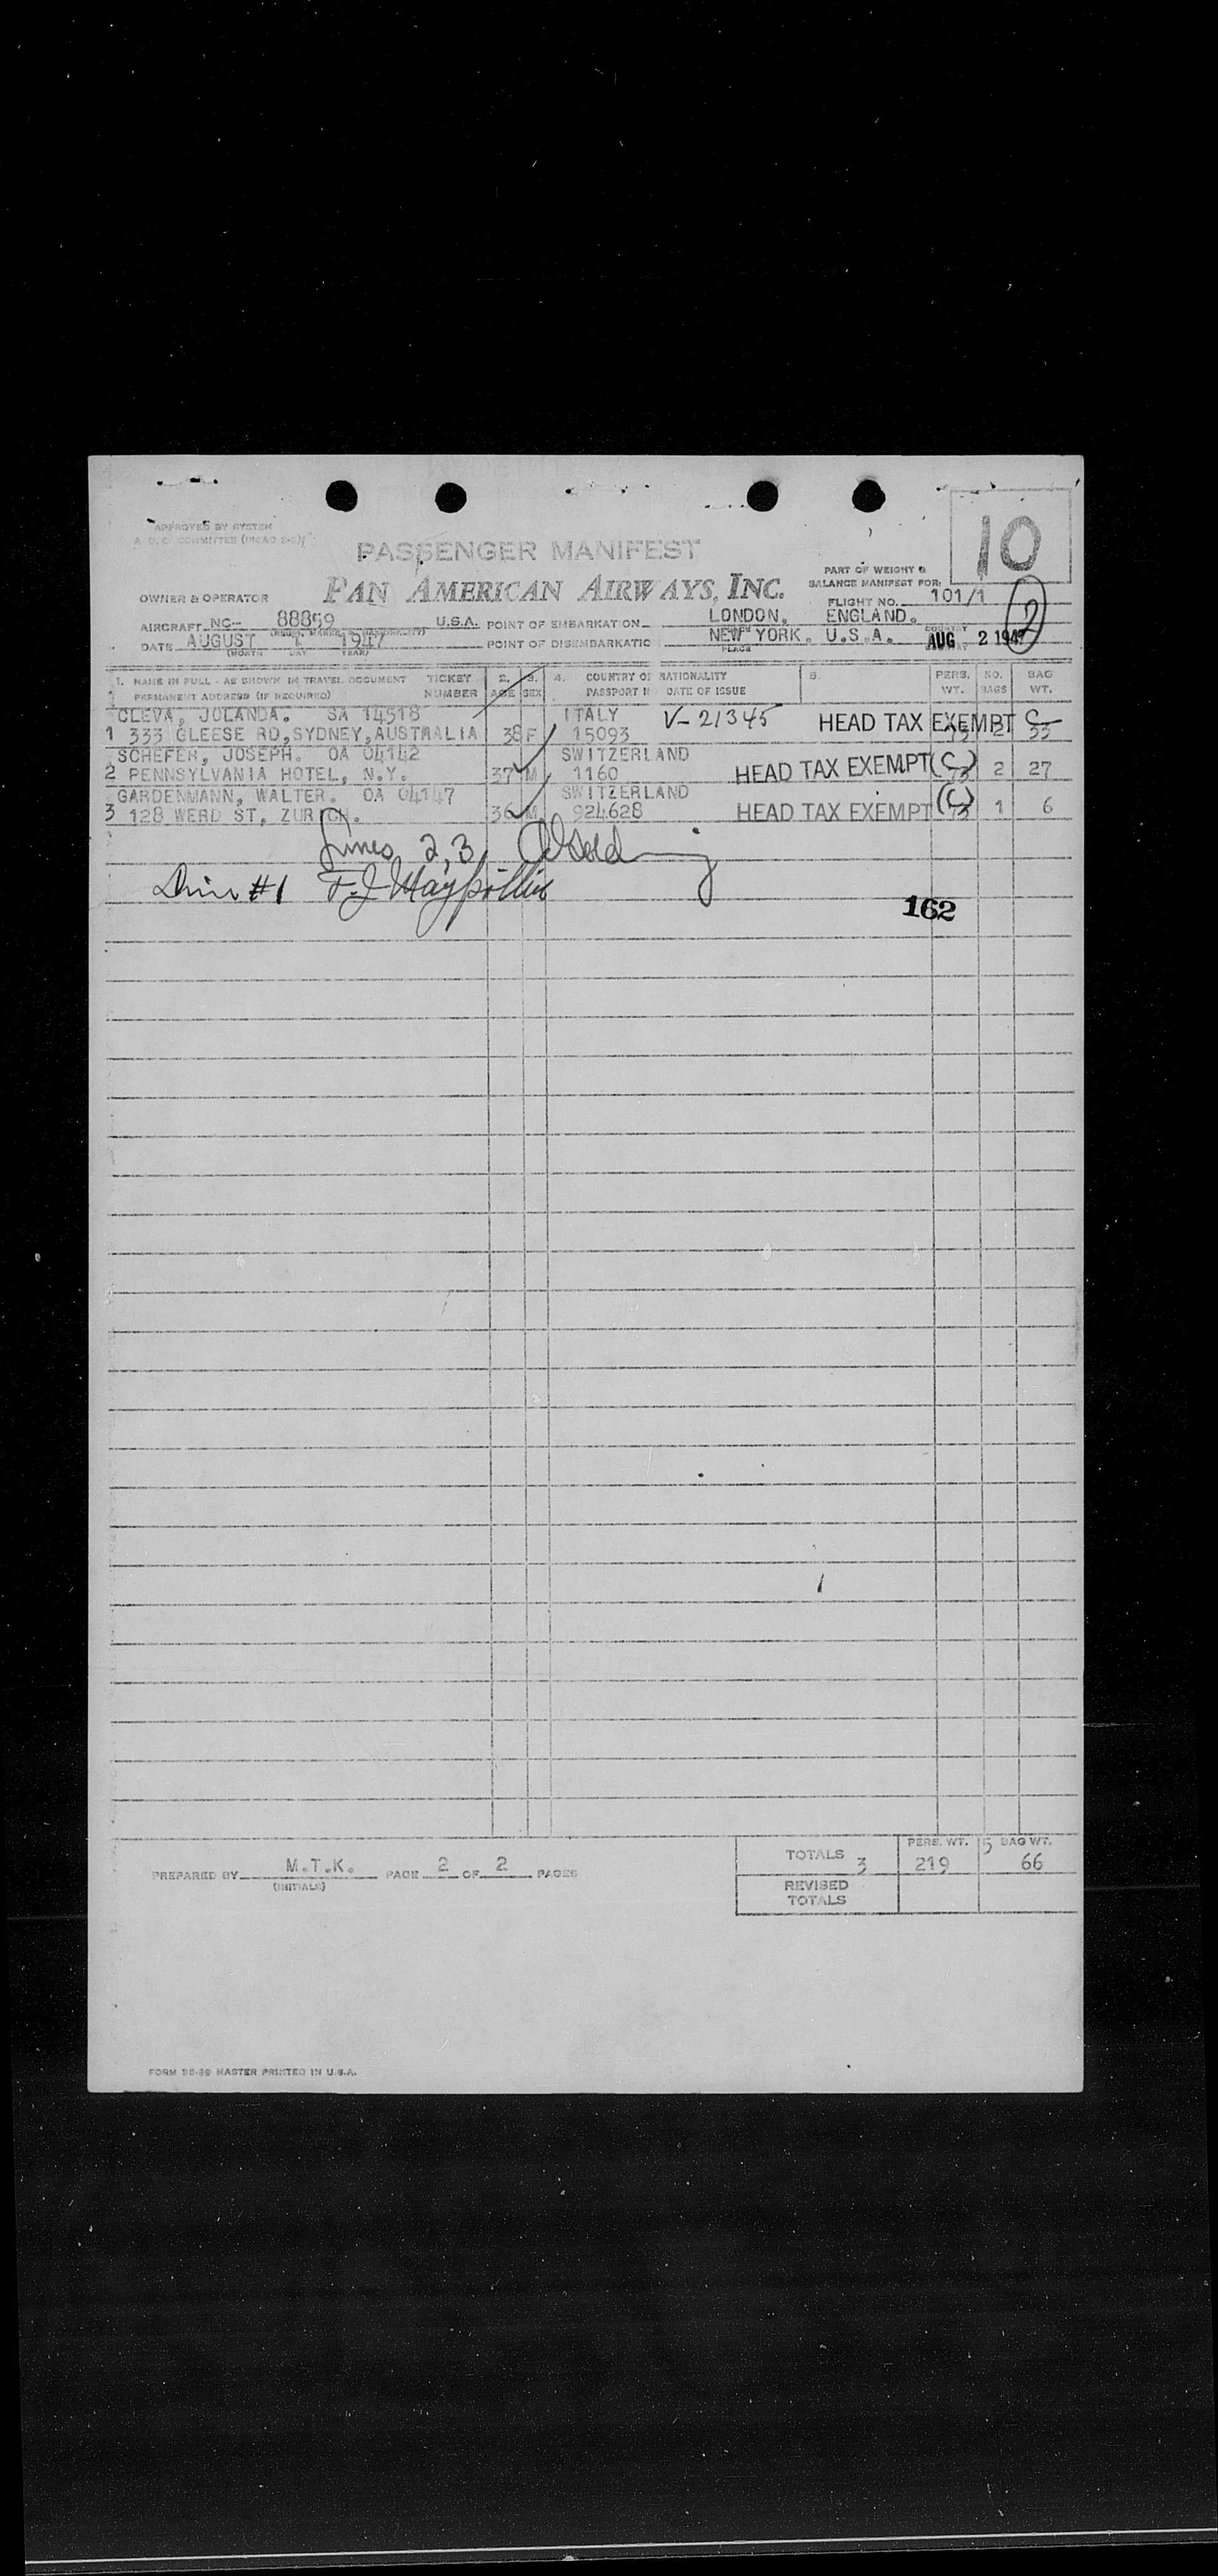 10
APPROVED BY SYSTEM
PASSENGER MANIFEST
PAN AMERICAN AIRWAYS, INC.
PART OF WEIGHT &
BALANCE MANIFEST FOR:
OWNER & OPERATOR
FLIGHT NO. 101/1
AIRCRAFT NC- 88859 U.S.A. POINT OF EMBARKATION LONDON, ENGLAND.
DATE AUGUST 1 1947 POINT OF DISEMBARKATIO NEW YORK. U.S.A. AUG 2 1947
(MONTH DAY YEAR) PLACE COUNTRY
2
1. NAME IN FULL - AS SHOWN IN TRAVEL DOCUMENT TICKET 2. 3. 4. COUNTRY OF NATIONALITY 5. PERS. NO. BAG
PERMANENT ADDRESS (IF REQUIRED) NUMBER AGE SEX PASSPORT N DATE OF ISSUE WT. BAGS WT.
CLEVA, JOLANDA. SA 14518 ITALY V-21345 HEAD TAX EXEMPT C
1 333 GLEESE RD, SYDNEY, AUSTRALIA 38 F 15093 73 2 33
SCHEFER, JOSEPH. OA 04142 SWITZERLAND
2 PENNSYLVANIA HOTEL, N.Y. 37 M 1160 HEAD TAX EXEMPT (C) 73 2 27
GARDENMANN, WALTER. OA 04147 SWITZERLAND
3 128 WERD ST, ZURICH. 36 M 924628 HEAD TAX EXEMPT (C) 73 1 6
Lines 2, 3
#1 F.J.
162
PREPARED BY M.T.K. PAGE 2 OF 2 PAGES
(INITIALS)
TOTALS 3 PERS. WT. 219 5 BAG WT. 66
REVISED
TOTALS
FORM 38-39 MASTER PRINTED IN U.S.A.